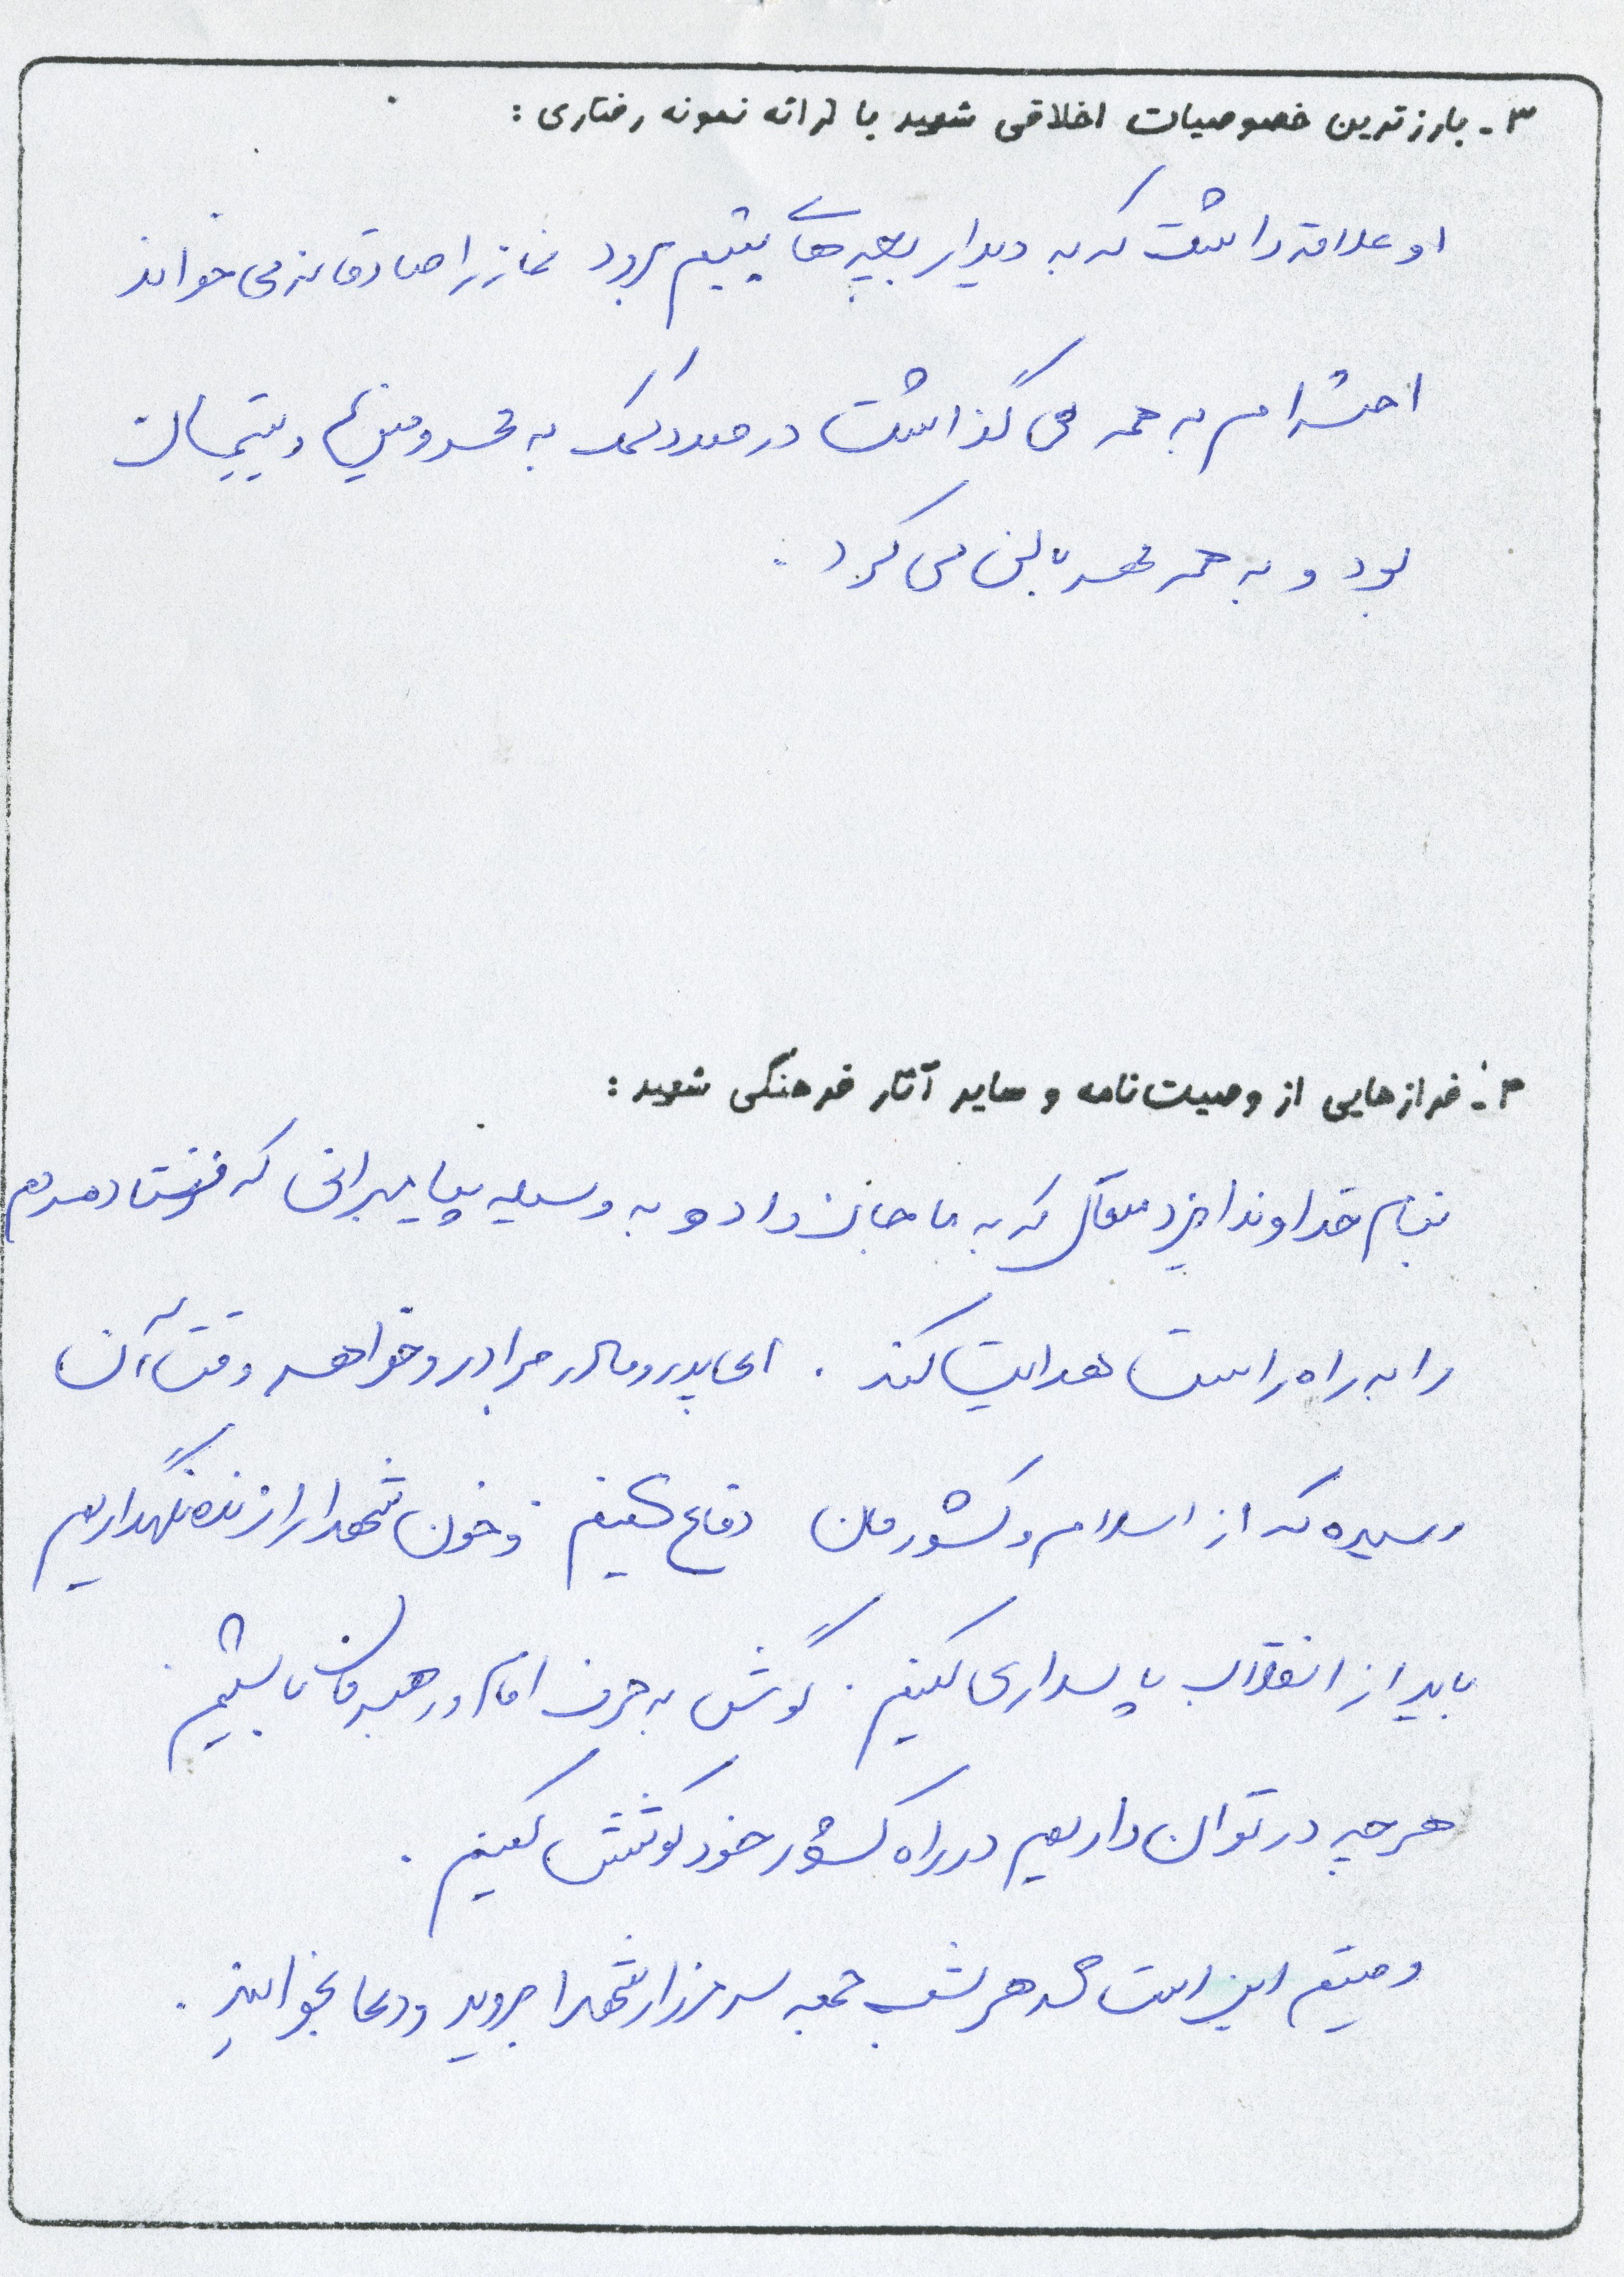 ۳- بارزترین خصوصیات اخلاقی شهید با ارائه نمونه رفتاری :
او علاقه داشت که به دیدار بچه های یتیم برود نماز را صادقانه می خواند
احترام به همه می گذاشت در صدد کمک به محرومین و یتیمان
بود و به همه مهربانی می کرد .
۴- فرازهایی از وصیت‌نامه و سایر آثار فرهنگی شهید :
بنام خداوند ایزد متعال که به ما جان داد و به وسیله پیامبرانی که فرستاد مردم
را به راه راست هدایت کند . ای پدر و مادر برادر و خواهر وقت آن
رسیده که از اسلام و کشورمان دفاع کنیم و خون شهدا را زنده نگهداریم
باید از انقلاب پاسداری کنیم . گوش به حرف امام و رهبرمان باشیم
هر چه در توان داریم در راه کشور خود کوشش کنیم .
وصیتم این است که هر شب جمعه سر مزار شهدا بروید و دعا بخوانید .